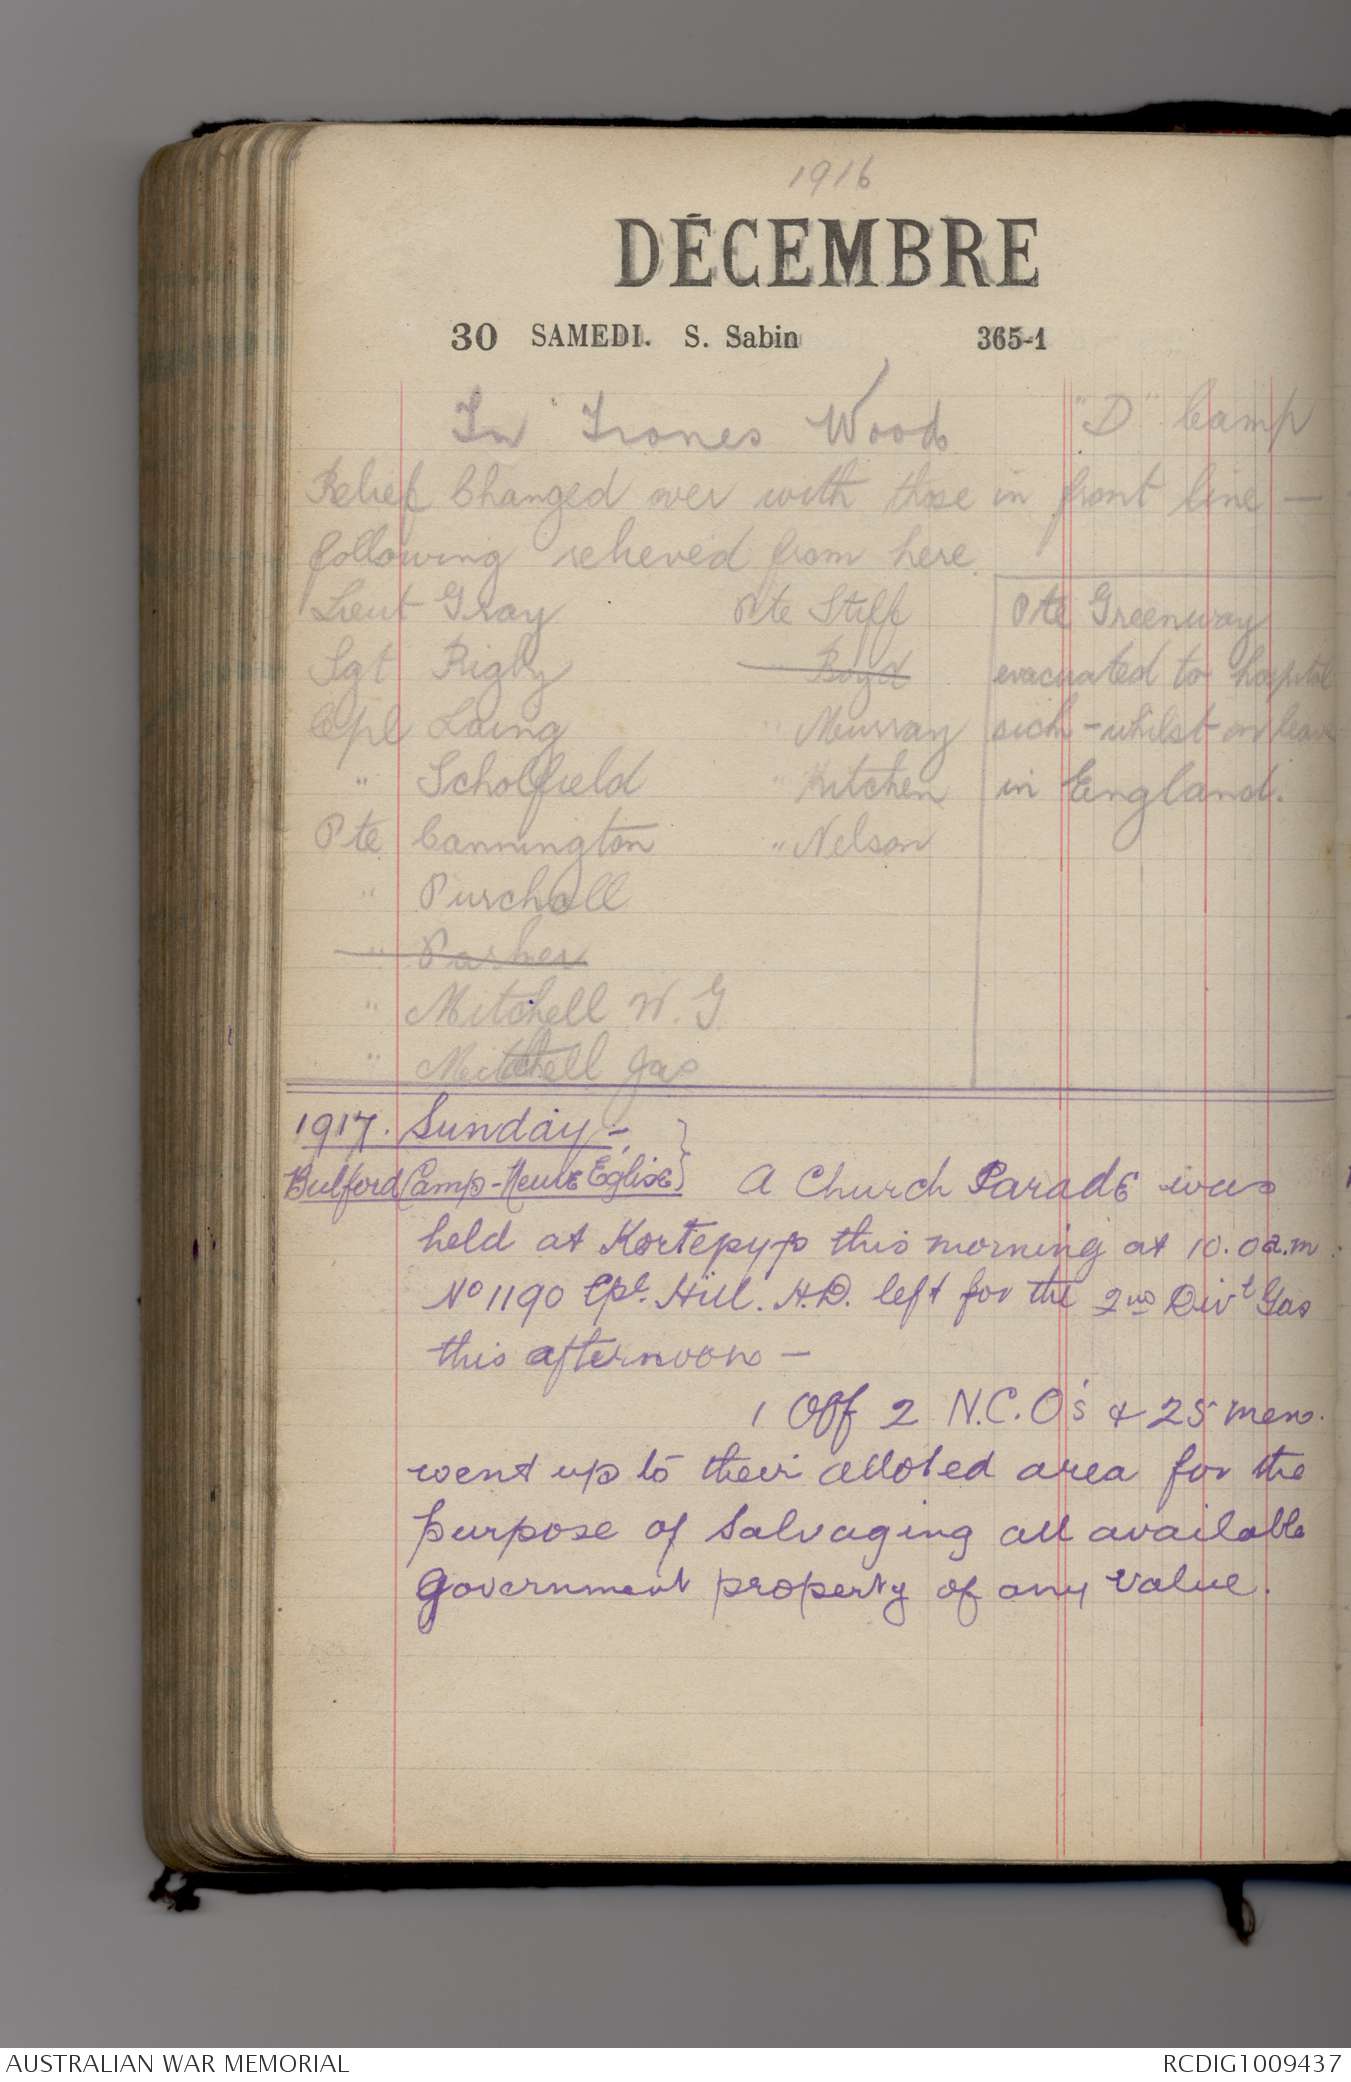 1916
DÉCEMBRE
30 SAMEDI. S. Sabin 365-1
In Trones Wood "D" Camp
Relief Changed over with those in front line —
following relieved from here.
Lieut Gray
Sgt Rigby
Cpl Laing
" Scholfield
Pte Cannington
" Purchall
" Parker
" Mitchell W. G
" Mitchell Jas
Pte Stiff
" Boyd
" Murray
" Kitchen
" Nelson
Pte Greenway
evacuated to hospital
sick - whilst on leave
in England.
1917. Sunday -
Bulford Camp - Neuve Église} A Church Parade was
held at Kortepyp this morning at 10.0 a.m.
No 1190 Cpl. Hill. H.D. left for the 2nd Divt Gas
this afternoon —
1 Off 2 N.C.O's & 25 men.
went up to their alloted area for the
purpose of Salvaging all available
Government property of any value.
AUSTRALIAN WAR MEMORIAL
RCDIG1009437